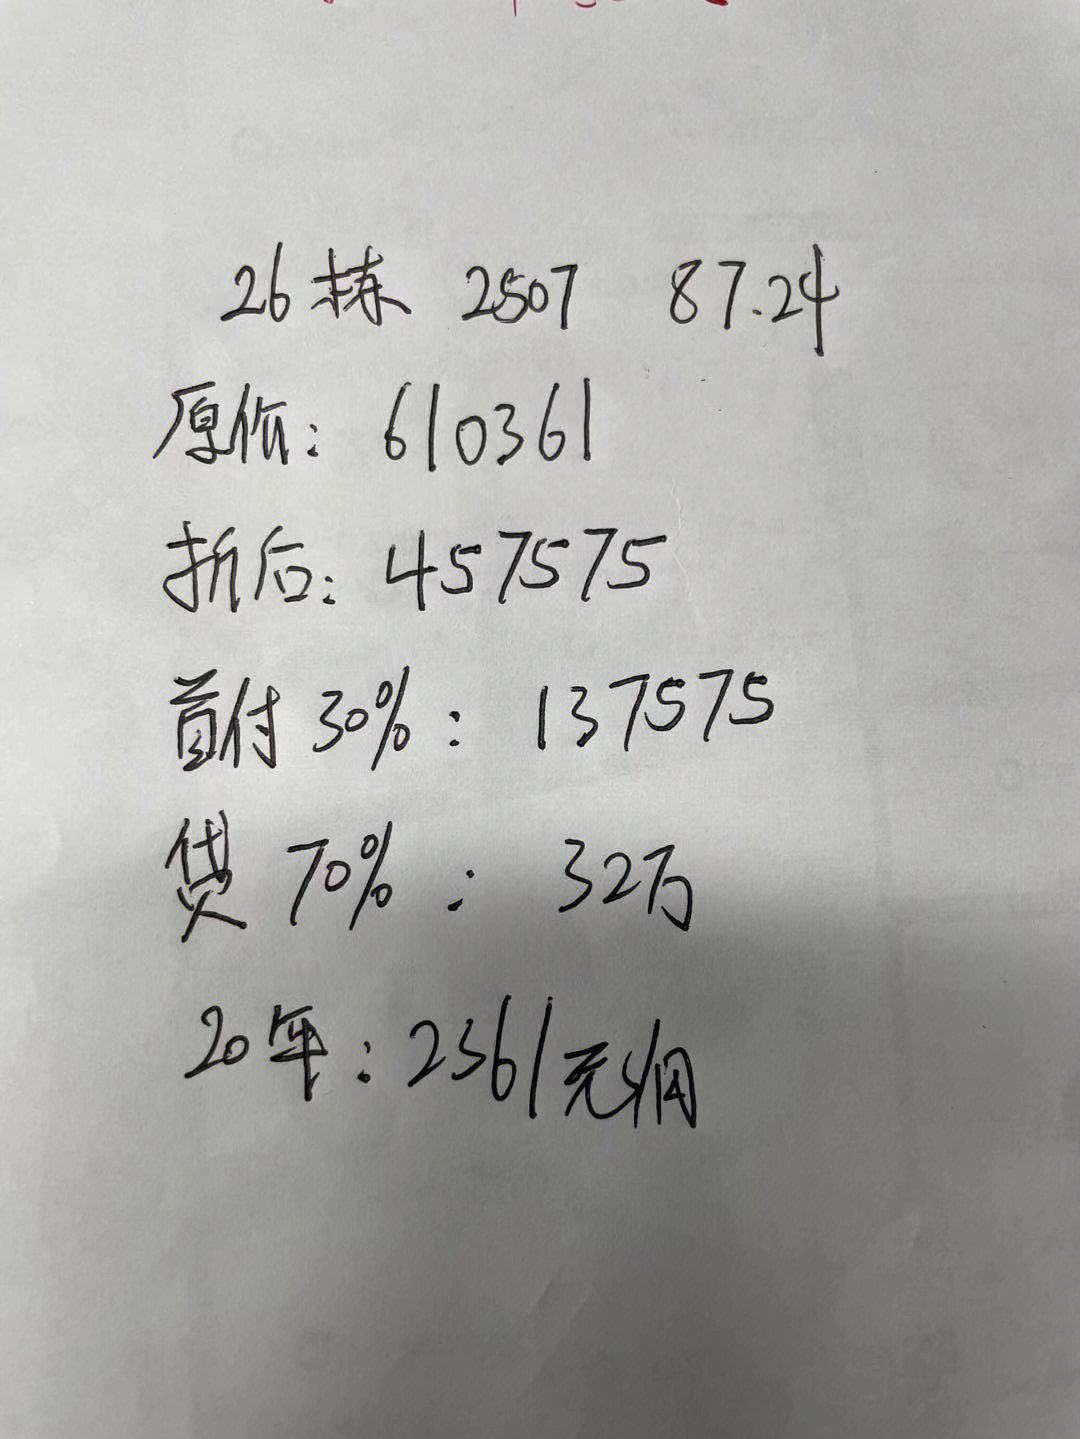 26栋 2507 87.24
原价: 610361
折后: 457575
首付30%: 137575
贷70%: 32万
20年: 2361元/